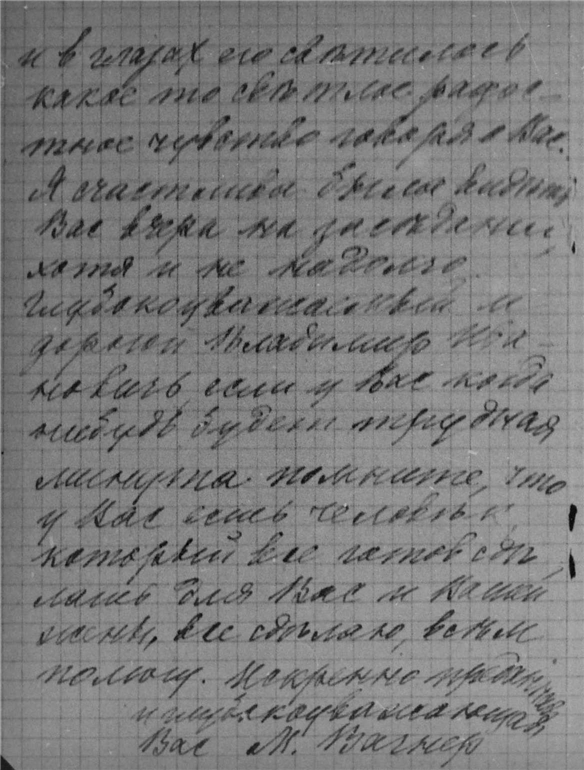 и в глазах его свѣтилось
какое то свѣтлое радос-
тное чувство говоря о Вас.
Я счастлива была видѣть
Вас вчера на заседании,
хотя и не надолго.
Глубокоуважаемый и
дорогой Владимир Ива-
новичъ, если у Вас когда
нибудь будет трудная
минута помните, что
у Вас есть человѣк,
который все готов сдѣ
лать для Вас и Вашей
жены, все сдѣлаю, всѣм
помогу. Искренно преданная
и глубокоуважающая
Вас М. Вагнер